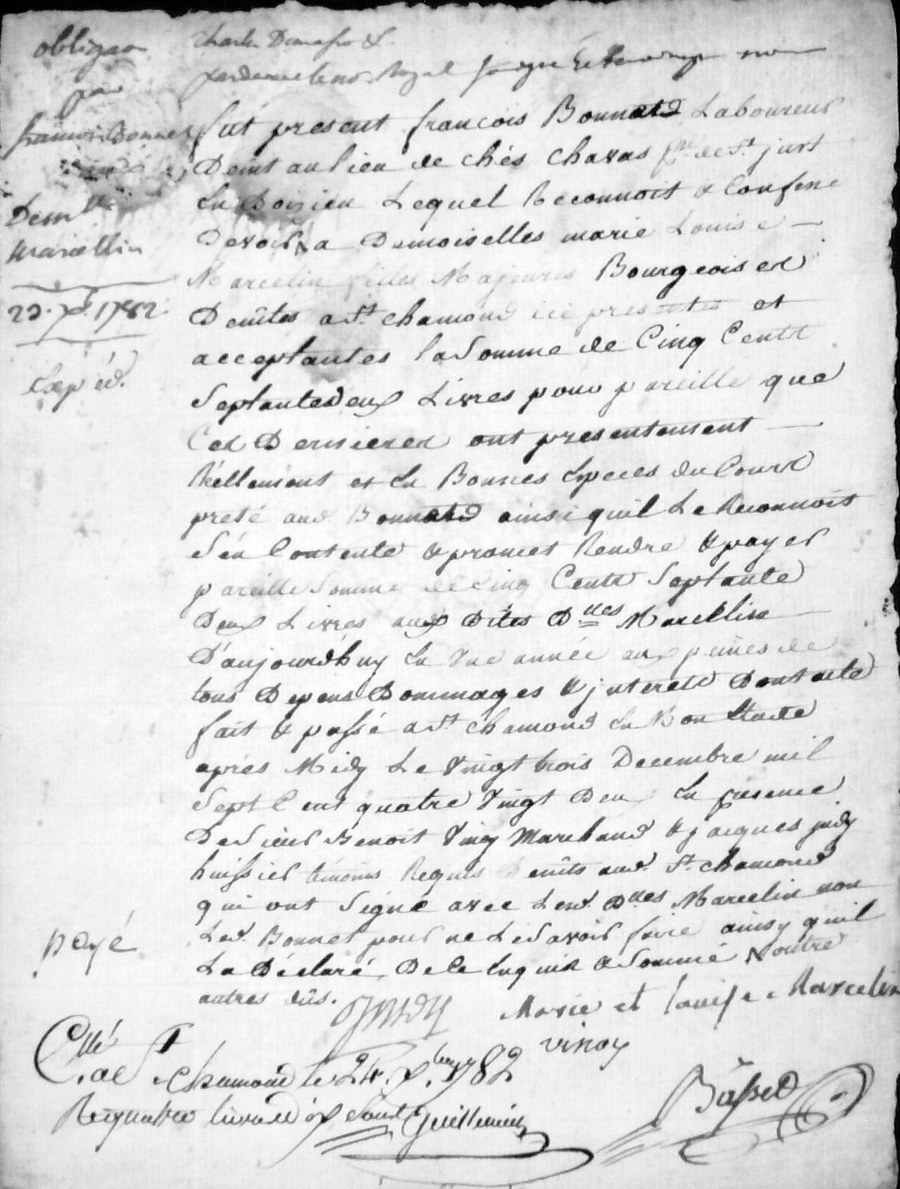 obligaon
par
françois Bonnet
Dem.lles
Marcellin
23. Xbre 1782
Expéd.
payé
fut present françois Bonnard Laboureur
Demt au lieu de chés Chavas psse de St just
En Doizieu Lequel Reconnoit & Confesse
Devoir a Demoiselles marie Louise
Marcelin filles Majeures Bourgeoises
Demtes a St chamond ici presentes et
acceptantes la Somme de Cinq Cents
Septantedeux Livres pour pareille que
Ces Dernieres ont presentement
Réellement et En Bonnes Especes du Cours
preté aud Bonnard ainsi quil Le Reconnoit
S'en Contente & promet Rendre & payer
pareille Somme de Cinq Cents Septante
Deux Livres aux Dites Dlles Marcellin
D'aujourdhuy En Une année aux peines de
tous Depens Dommages & interets Dont acte
fait & passé a St chamond En Mon Etude
aprés Midy Le Vingt trois Decembre mil
Sept Cent quatre Vingt Deux En presence
De Sieur Benoit Vinoy Marchand & jacques judy
huissier temoins Requis Demts aud. St chamond
qui ont Signé avec Lesd. Dlles Marcelin non
Led. Bonnet pour ne Le Savoir faire ainsy quil
La Déclaré De ce Enquis & Sommé
autres dits.
Marie et Louise Marcelin
Vinoy
Cllé
a St Chamond le 24. Xbre 1782
Guillemin
Basset